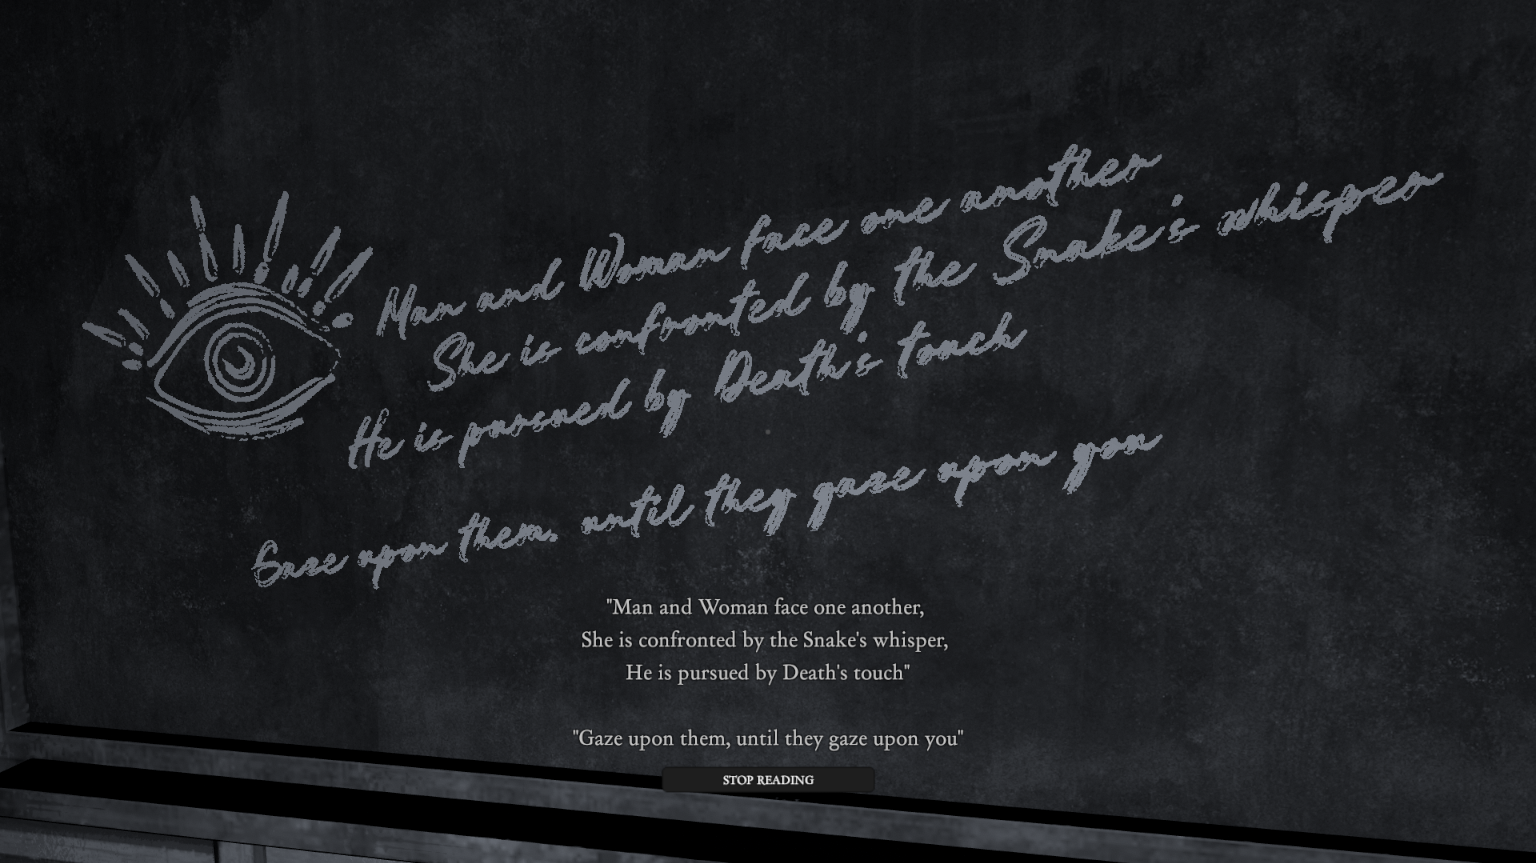 Man and Woman face one another
She is confronted by the Snake's whisper
He is pursued by Death's touch
Gaze upon them, until they gaze upon you
"Man and Woman face one another,
She is confronted by the Snake's whisper,
He is pursued by Death's touch"
"Gaze upon them, until they gaze upon you"
STOP READING